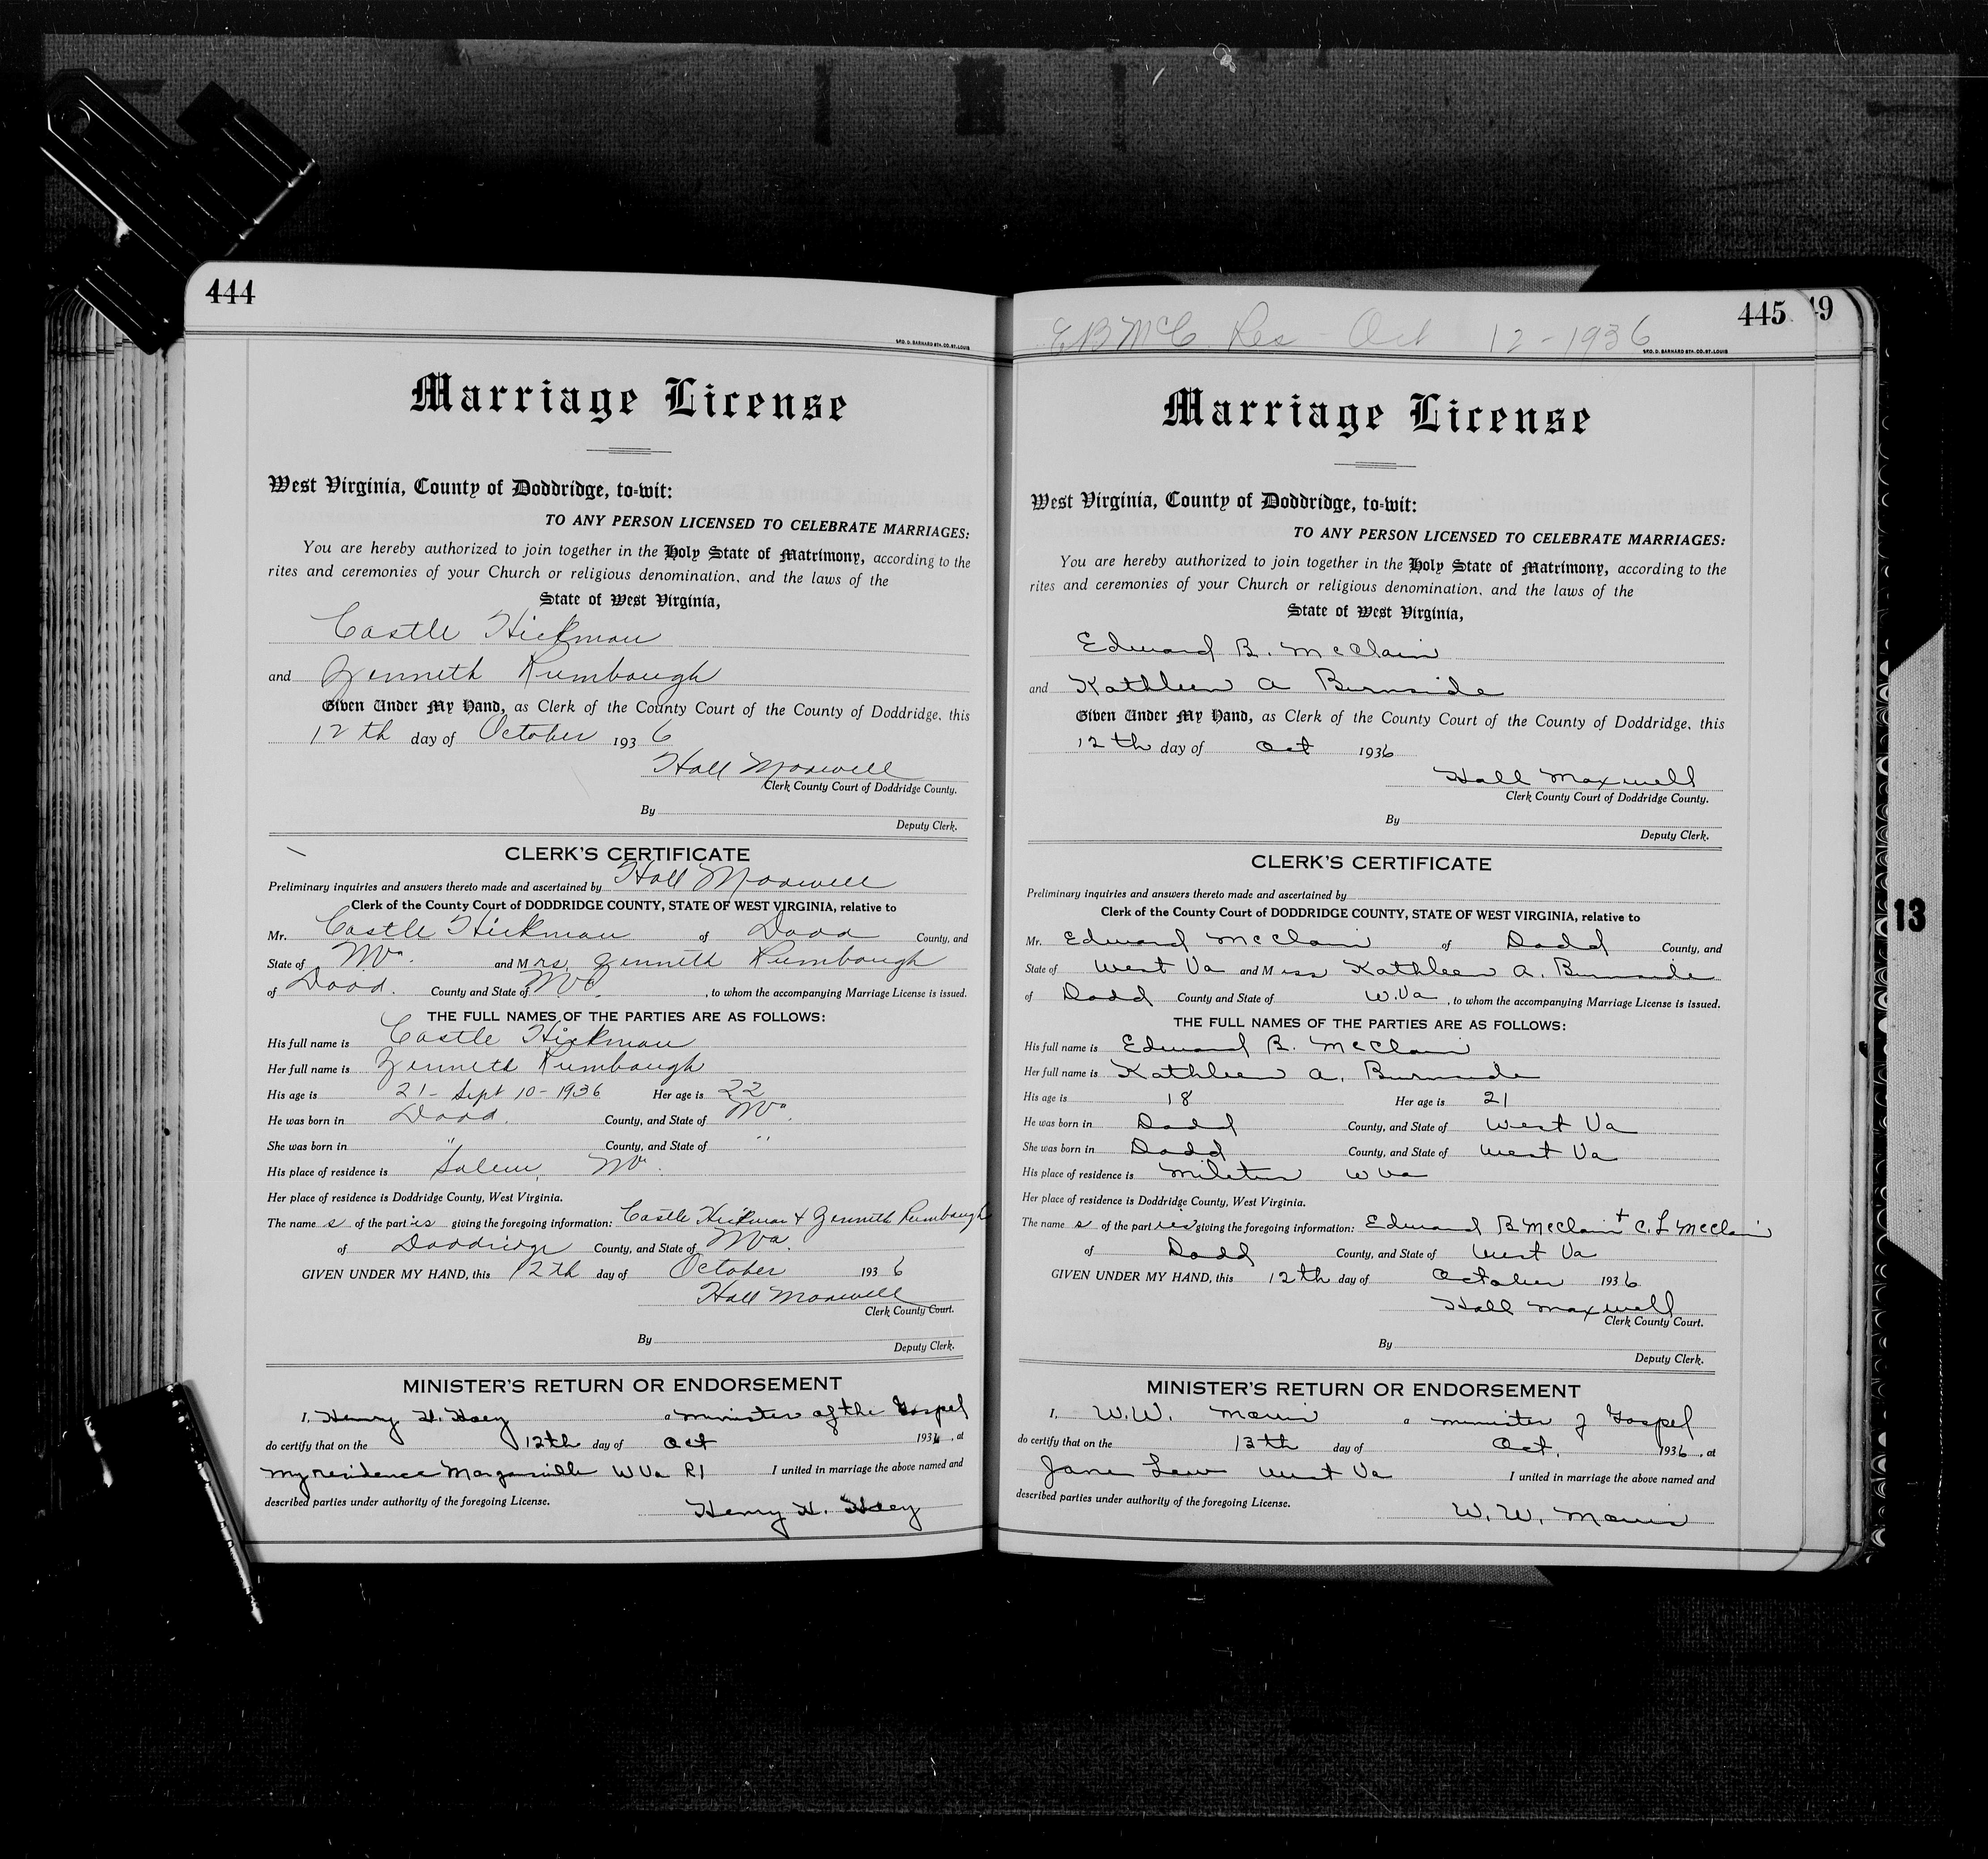 444
GEO. D. BARNARD STA. CO. ST. LOUIS
Marriage License
West Virginia, County of Doddridge, to-wit:
TO ANY PERSON LICENSED TO CELEBRATE MARRIAGES:
You are hereby authorized to join together in the Holy State of Matrimony, according to the
rites and ceremonies of your Church or religious denomination, and the laws of the
State of West Virginia,
Castle Hickman
and Zenneth Rumbaugh
Given Under My Hand, as Clerk of the County Court of the County of Doddridge, this
12th day of October 1936
Hall Maxwell
Clerk County Court of Doddridge County.
By
Deputy Clerk.
CLERK'S CERTIFICATE
Preliminary inquiries and answers thereto made and ascertained by Hall Maxwell
Clerk of the County Court of DODDRIDGE COUNTY, STATE OF WEST VIRGINIA, relative to
Mr. Castle Hickman of Dodd County, and
State of WVa. and Mrs. Zenneth Rumbaugh
of Dodd. County and State of WVa. , to whom the accompanying Marriage License is issued.
THE FULL NAMES OF THE PARTIES ARE AS FOLLOWS:
His full name is Castle Hickman
Her full name is Zenneth Rumbaugh
His age is 21 - Sept 10 - 1936 Her age is 22
He was born in Dodd. County, and State of WVa.
She was born in " County, and State of "
His place of residence is Salem, WVa.
Her place of residence is Doddridge County, West Virginia.
The name s of the part is giving the foregoing information: Castle Hickman & Zenneth Rumbaugh
of Doddridge County, and State of WVa.
GIVEN UNDER MY HAND, this 12th day of October 1936
Hall Maxwell
Clerk County Court.
By
Deputy Clerk.
MINISTER'S RETURN OR ENDORSEMENT
I, Henry H. Haey a minister of the Gospel
do certify that on the 12th day of Oct 1936, at
my residence Morgansville W Va R1 I united in marriage the above named and
described parties under authority of the foregoing License.
Henry H. Haey
445
49
EB McC Res Oct 12-1936
GEO. D. BARNARD STA. CO. ST. LOUIS
Marriage License
West Virginia, County of Doddridge, to-wit:
TO ANY PERSON LICENSED TO CELEBRATE MARRIAGES:
You are hereby authorized to join together in the Holy State of Matrimony, according to the
rites and ceremonies of your Church or religious denomination, and the laws of the
State of West Virginia,
Edward B. McClain
and Kathleen A Burnside
Given Under My Hand, as Clerk of the County Court of the County of Doddridge, this
12th day of Oct 1936
Hall Maxwell
Clerk County Court of Doddridge County.
By
Deputy Clerk.
CLERK'S CERTIFICATE
Preliminary inquiries and answers thereto made and ascertained by
Clerk of the County Court of DODDRIDGE COUNTY, STATE OF WEST VIRGINIA, relative to
Mr. Edward McClain of Dodd County, and
State of West Va and Miss Kathleen A. Burnside
of Dodd County and State of W.Va , to whom the accompanying Marriage License is issued.
THE FULL NAMES OF THE PARTIES ARE AS FOLLOWS:
His full name is Edward B. McClain
Her full name is Kathleen A. Burnside
His age is 18 Her age is 21
He was born in Dodd County, and State of West Va
She was born in Dodd County, and State of West Va
His place of residence is Mileton W Va
Her place of residence is Doddridge County, West Virginia.
The name s of the part ies giving the foregoing information: Edward B McClain + C. L McClain
of Dodd County, and State of West Va
GIVEN UNDER MY HAND, this 12th day of October 1936
Hall Maxwell
Clerk County Court.
By
Deputy Clerk.
MINISTER'S RETURN OR ENDORSEMENT
I, W.W. Morris a minister of Gospel
do certify that on the 13th day of Oct. 1936, at
Jane Lew West Va I united in marriage the above named and
described parties under authority of the foregoing License.
W. W. Morris
13